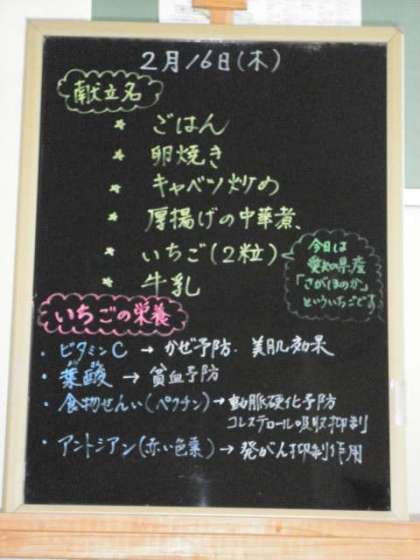 2月16日(木)
献立名
* ごはん
* 卵焼き
* キャベツ炒め
* 厚揚げの中華煮
* いちご(2粒)
今日は
愛知県産
「さがほのか」
といういちごです
* 牛乳
いちごの栄養
・ビタミンC → かぜ予防・美肌効果
・葉酸 → 貧血予防
・食物せんい(ペクチン)→ 動脈硬化予防
コレステロール吸収抑制
・アントシアン(赤い色素) → 発がん抑制作用